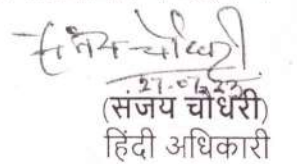 संजय चौधरी
27.07.23
(संजय चौधरी)
हिंदी अधिकारी